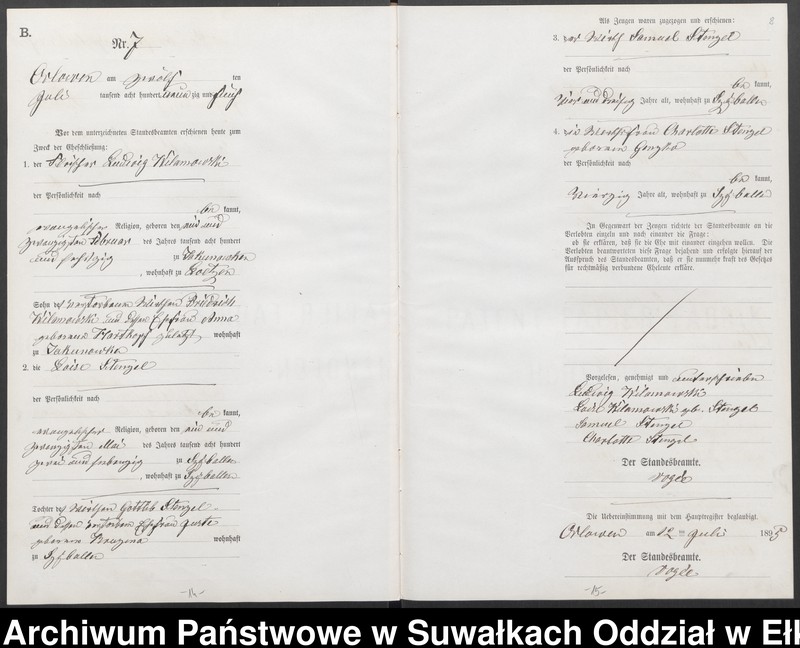 B.
Nr. 7
Orlowen am zwölf ten
Juli tausend acht hundert neun zig und fünf
Vor dem unterzeichneten Standesbeamten erschienen heute zum
Zweck der Eheschließung:
1. der Fleischer Ludwig Wilamowski
der Persönlichkeit nach
be kannt,
evangelischer Religion, geboren den ein und
zwanzigsten Februar des Jahres tausend acht hundert
und sechszig zu Jakunowken
, wohnhaft zu Loetzen
Sohn des verstorbenen Wirthen Friedrich
Wilamowski und dessen Ehefrau Anna
geborene zuletzt wohnhaft
zu Jakunowken
2. die Loise Stenzel
der Persönlichkeit nach
be kannt,
evangelischer Religion, geboren den ein und
zwanzigsten Mai des Jahres tausend acht hundert
zwei und siebenzig zu
, wohnhaft zu
Tochter des Wirthen Gottlieb Stenzel
und dessen verstorbenen Ehefrau Juste
geborene wohnhaft
zu
-14-
2
Als Zeugen waren zugezogen und erschienen:
3. der Wirth Samuel Stenzel
der Persönlichkeit nach
be kannt,
vier und dreißig Jahre alt, wohnhaft zu
4. die Wirthsfrau Charlotte Stenzel
geborene
der Persönlichkeit nach
be kannt,
vierzig Jahre alt, wohnhaft zu
In Gegenwart der Zeugen richtete der Standesbeamte an die
Verlobten einzeln und nach einander die Frage:
ob sie erklären, daß sie die Ehe mit einander eingehen wollen. Die
Verlobten beantworteten diese Frage bejahend und erfolgte hierauf der
Ausspruch des Standesbeamten, daß er sie nunmehr kraft des Gesetzes
für rechtmäßig verbundene Eheleute erkläre.
Vorgelesen, genehmigt und unterschrieben
Ludwig Wilamowski
Loise Wilamowski geb. Stenzel
Samuel Stenzel
Charlotte Stenzel
Der Standesbeamte.
Vogée
Die Uebereinstimmung mit dem Hauptregister beglaubigt.
Orlowen am 12 ten Juli 1895
Der Standesbeamte.
Vogée
-15-
Archiwum Państwowe w Suwałkach Oddział w Ełk